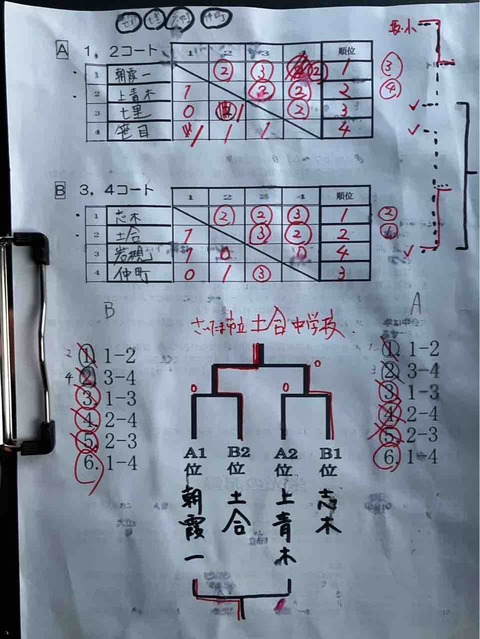 A 1，2コート
1 2 3 4 順位
1 朝霞一 ② ③ ② 1 ③
2 上青木 1 ② ② 2 ④
3 七里 0 1 ② 3
4 笹目 1 1 1 4
B 3，4コート
1 2 3 4 順位
1 志木 ② ② ③ 1 ②
2 土合 1 ③ ② 2
3 岩槻 1 0 0 4
4 仲町 0 1 ③ 3
B
A
さいたま市立土合中学校
2 ① 1-2
4 ② 3-4
③ 1-3
④ 2-4
⑤ 2-3
⑥ 1-4
① 1-2
3 ② 3-4
③ 1-3
④ 2-4
⑤ 2-3
⑥ 1-4
0 0
0
A1位 B2位 A2位 B1位
朝霞一 土合 上青木 志木